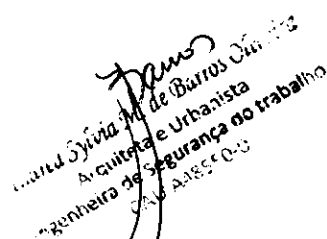 Sylvia M. de Barros
Arquiteta e Urbanista
Engenheira de Segurança do trabalho
CAU A18550-0